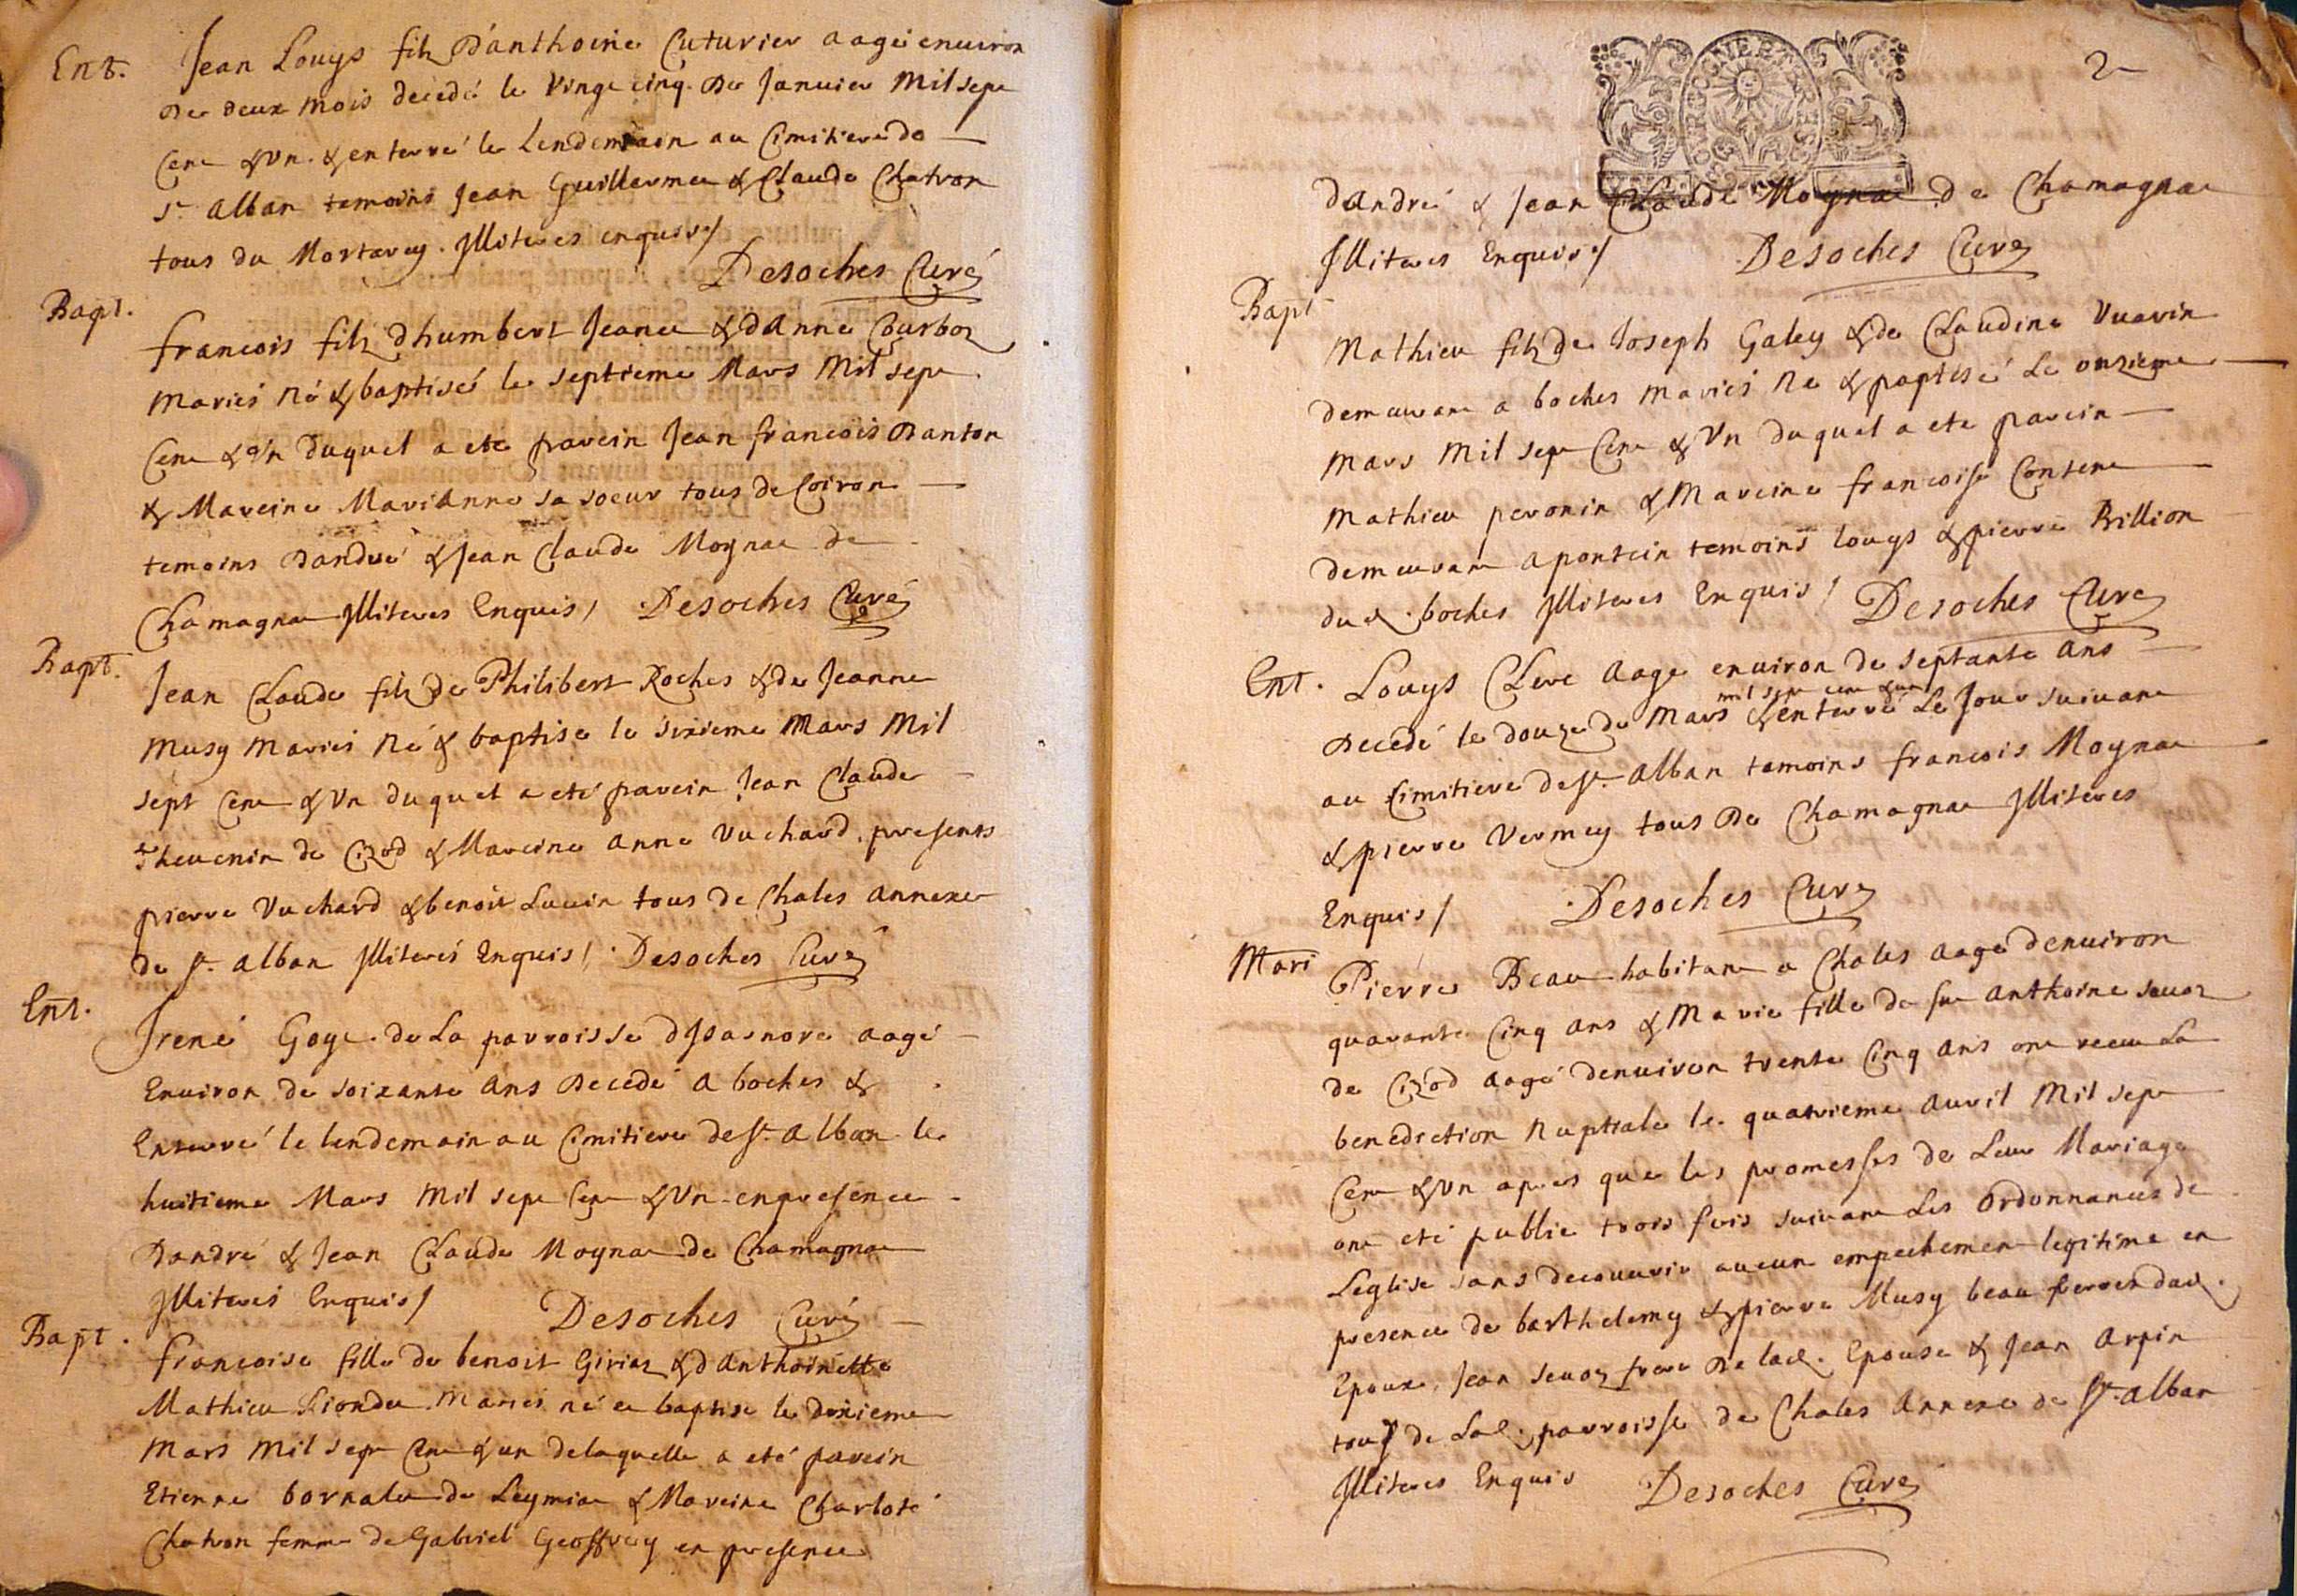 Ent. Jean Louys filz D'anthoine Cuturier aagé enuiron
De deux mois decedé le Vingt cinq De Januier Mil sept
Cent & Vn. & enterré le Lendemain au Cimitiere de
St alban temoins Jean Guillermet & Claude Chatron
tous du Mortarey. Illiterés enquis/
Desoches Curé
Bapt.
francois filz dhumbert Jeanet & danne Courboz
Mariés né & baptisé le septieme Mars Mil sept
Cent & Vn Duquel a eté parein Jean francois Danton
& Mareine MariAnne sa soeur tous de Coiron
temoins Dandré & Jean Claude Moynat de
Chamagnat Illiterés Enquis/ Desoches Curé
Bapt.
Jean Claude filz de Philibert Roches & de Jeanne
Musy Mariés Né & baptisé le sixieme Mars Mil
sept Cent & Vn duquel a eté parein Jean Claude
Theuenin de Cizod & Mareine anne Vuchard. presents
pierre Vuchard & benoit Luuin tous de Chales annexe
de St. alban Illiterés Enquis/ Desoches Curé
Ent.
Irené Goye de La parroisse d'Isarnore aagé
Enuiron de soixante ans Decedé a boches &
Enterré le lendemain au Cimitiere de St. alban le
huitieme Mars Mil sept Cent & Vn en presence
Dandré & Jean Claude Moynat de Chamagnat
Illiterés Enquis/ Desoches Curé
Bapt.
francoise fille de benoit Giriez & d'anthoinette
Mathieu Mariés né et baptisé le dixieme
Mars Mil sept Cent & un delaquelle a eté parein
Etienne bornalet de Leymiat & Mareine Charlote
Chatron femme de Gabriel Geoffrey en presence
2
dAndré & Jean Claude Moynat de Chamagnat
Illiterés Enquis/ Desoches Curé
Bapt
Mathieu filz de Joseph Galey & de Claudine Vuarin
demeurant a boches Mariés Né & paptisé Le onzieme
Mars Mil sept Cent & Vn duquel a eté parein
Mathieu peronin & Mareine francoise Contene
demeurant a pontein temoins Louys & pierre Billion
dud. boches Illiterés Enquis/ Desoches Curé
Ent. Louys Clerc aagé enuiron de septante ans
mil sept cent & un
Decedé le douze de Mars & enterré Le Jour suiuant
au Cimitiere de St. alban temoins francois Moynat
& pierre Vermey tous De Chamagnat Illiterés
Enquis/ Desoches Curé
Mari Pierre Beau habitant a Chales aagé denuiron
quarante Cinq ans & Marie fille de fu anthoine sauoz
de Cizod aagé denuiron trente Cinq ans ont receu La
benediction Nuptiale le quatrieme auril Mil sept
Cent & Vn apres que les promesses de Leur Mariage
ont eté publié trois fois suiuant Les Ordonnances de
Leglise sans decouurir aucun empechement legitime en
presence de barthelemy & pierre Musy beau freres dud.
Epoux. Jean sauoz frere De lad. Epouse & Jean arpin
tous de Lad. parroisse de Chales annexe de St. alban
Illiterés Enquis Desoches Curé